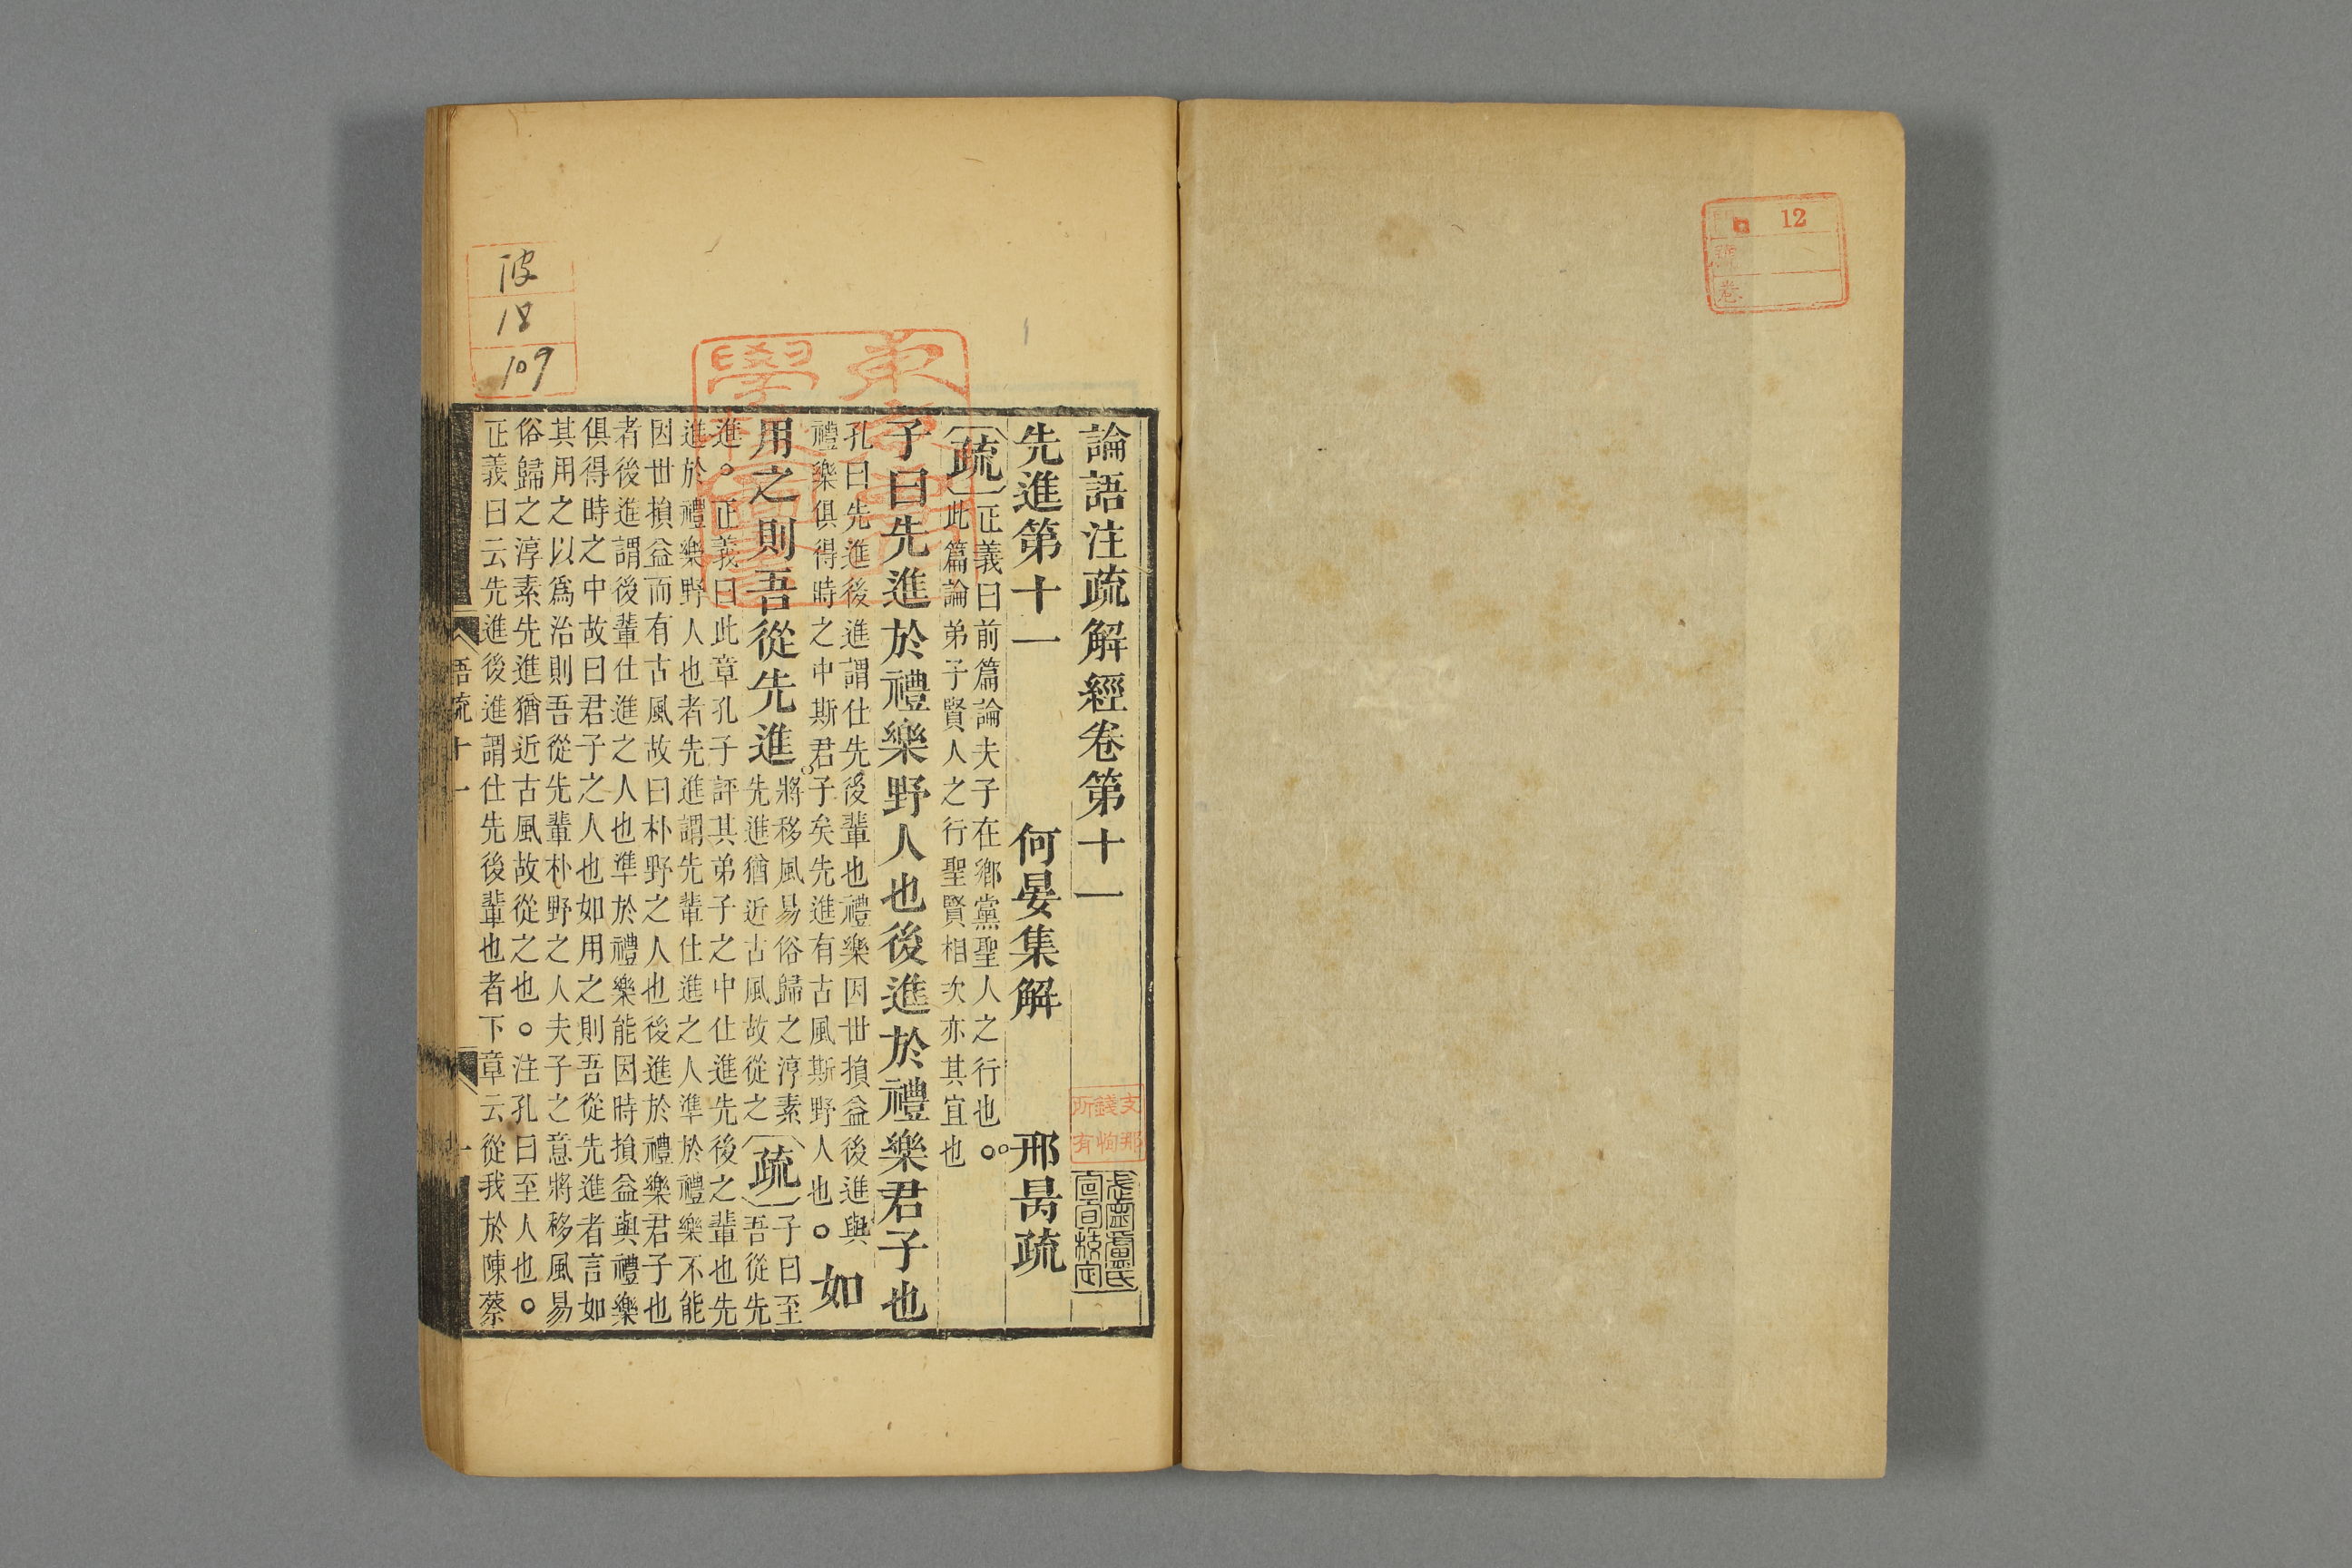 12
號
卷
論語注疏解經卷第十一
支那
錢恂
所有
先進第十一 何晏集解 邢昺疏
疏
正義曰前篇論夫子在鄉黨聖人之行也
此篇論弟子賢人之行聖賢相次亦其宜也
子曰先進於禮樂野人也後進於禮樂君子也
孔曰先進後進謂仕先後輩也禮樂因世損益後進與
禮樂俱得時之中斯君子矣先進有古風斯野人也○
如
用之則吾從先進
將移風易俗歸之淳素
先進猶近古風故從之
疏
子曰至
吾從先
進○正義曰此章孔子評其弟子之中仕進先後之輩也先
進於禮樂野人也者先進謂先輩仕進之人準於禮樂不能
因世損益而有古風故曰朴野之人也後進於禮樂君子也
者後進謂後輩仕進之人也準於禮樂能因時損益與禮樂
俱得時之中故曰君子之人也如用之則吾從先進者言如
其用之以為治則吾從先輩朴野之人夫子之意將移風易
俗歸之淳素先進猶近古風故從之也○注孔曰至人也○
正義曰云先進後進謂仕先後輩也者下章云從我於陳蔡
語疏十一
一
18
109